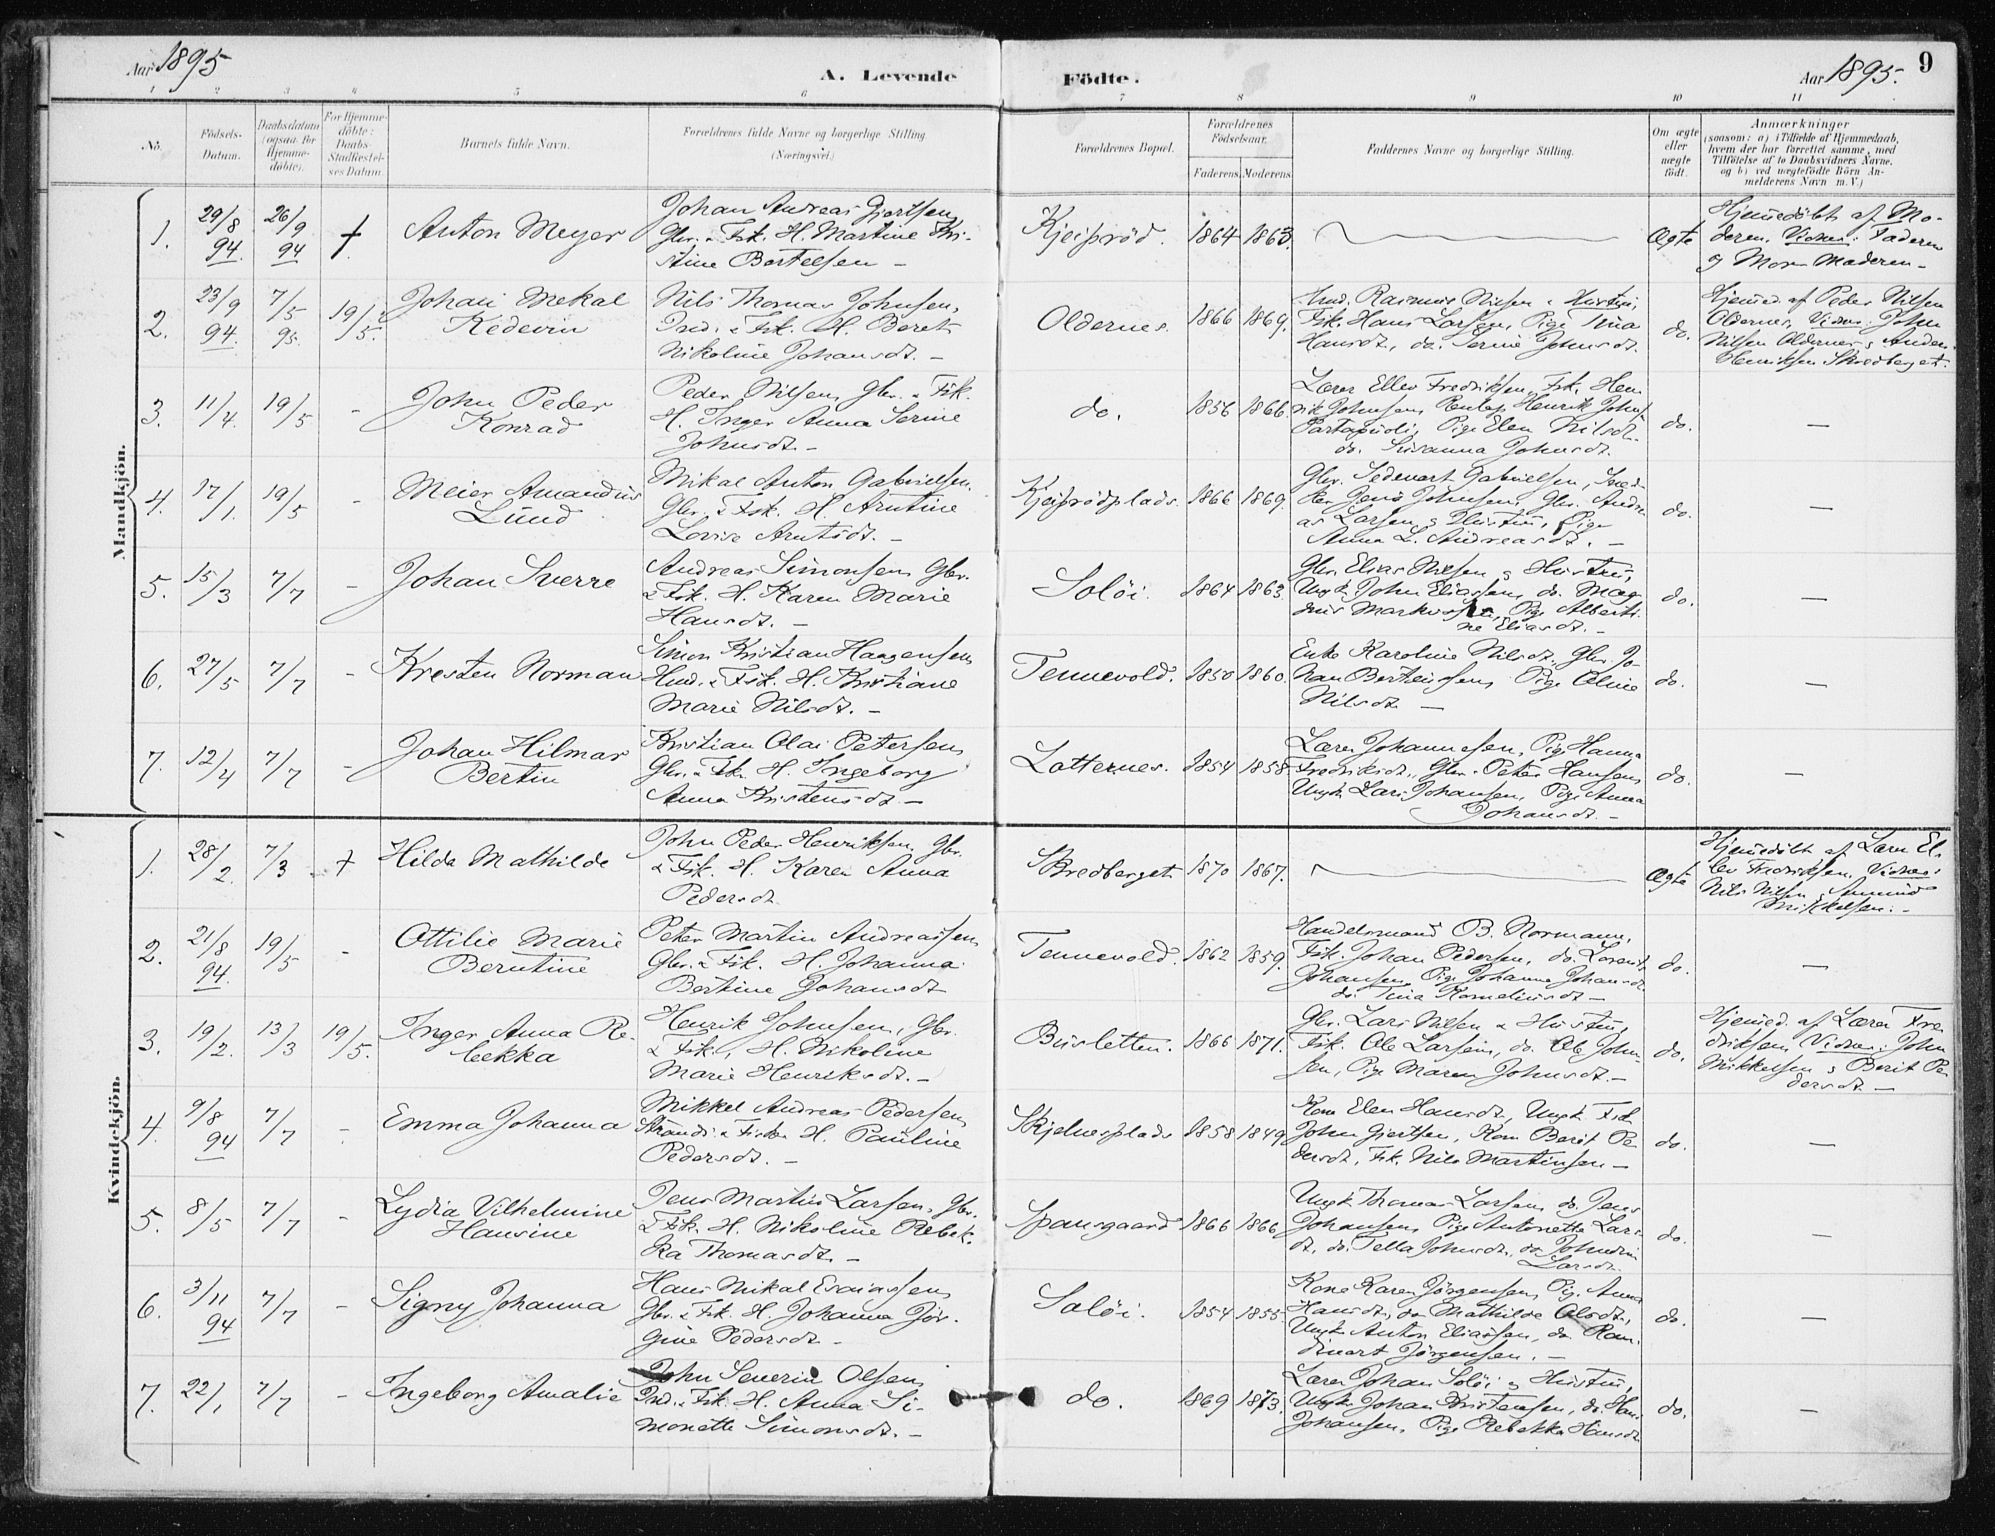 Aar 1895
A. Levende
Födte.
Aar 1895.
9
1 2 3 4 5 6 7 8 9 10 11
No.
Födsels-
Datum.
Daabsdatum
(ogsaa for
Hjemme-
döbte).
For Hjemme-
döbte:
Daabs-
Stadfæstel-
ses Datum.
Barnets fulde Navn.
Forældrenes fulde Navne og borgerlige Stilling
(Næringsvei.)
Forældrenes Bopæl.
Forældrenes
Födselsaar.
Faderens. Moderens.
Faddernes Navne og borgerlige Stilling.
Om ægte
eller
uægte
födt.
Anmærkninger
(saasom: a) i Tilfælde af Hjemmedaab,
hvem der har forrettet samme, med
Tilföielse af to Daabsvidners Navne,
og b) ved uægtefödte Börn An-
melderens Navn m. V.)
Mandkjön.
1. 29/8 94. 26/9 94 + Anton Meyer
Johan Andreas Gjertsen,
Gbr. & Fsk. H. Martine Kri-
stine Bertelsen –
Kjeiprød. 1864 1863. Ægte
Hjemmedöbt af Mo-
deren. Vidner: Faderen
og Mor Moderen –
2. 23/9 94. 7/5 95. 19/5.
Johan Mekal
Kedevin
Nils Thomas Johnsen,
Ind. & Fsk. H. Beret
Nikoline Johansdt. –
Oldernes. 1866 1869.
Ind. Rasmus Nilsen & Hustru,
Fsk. Hans Larsen, Pige Tina
Hansdt, do. Serine Johnsdt.
do.
Hjemmed. af Peder Nilsen
Oldernes, Vidner: John
Nilsen Oldernes & Anders
Henriksen Skredberget.
3. 11/4 19/5 -
John Peder
Konrad
Peder Nilsen, Gbr. & Fsk.
H. Inger Anna Serine
Johnsdt. –
do. 1856 1866.
Lærer Ellev Fredriksen, Fsk. Hen
rik Johnsen, Henrik Johns
Pige Elen Nilsdt.
do. Susanna Johnsdt.
do. –
4. 17/1. 19/5 -
Meier Amandus
Lund
Mikal Anton Gabrielsen.
Gbr. & Fsk. H. Arntine
Lovise Arntsdt. –
Kjeiprødplads. 1866 1869.
Gbr. Gabrielsen,
Jens Johnsen, Gbr. Andre
as Larsen & Hustru, Pige
Anna L. Andreasdt. –
do. –
5. 15/3 7/7 - Johan Sverre
Andreas Simonsen, Gbr.
& Fsk. H. Karen Marie
Hansdt. –
Soløi. 1864 1863.
Gbr. Elias Nilsen & Hustru,
Ungk. John Eliassen, do. Mag
nus Markussen, Pige Alberti
ne Eliasdt. –
do. –
6. 27/5 7/7 - Kresten Norman
Simon Kristian Haagensen,
Ind. & Fsk. H. Kristiane
Marie Nilsdt. –
Tennevold. 1850 1860.
Enke Karoline Nilsdt. Gbr. Jo
han Berteussen, Pige Oline
Nilsdt –
do. –
7. 12/4 7/7 -
Johan Hilmar
Bertin
Kristian Olai Petersen,
Gbr. & Fsk. H. Ingeborg
Anna Kristensdt –
Lotternes. 1854 1858
Lærer Johannesen, Pige Hanna
Fredriksdt., Gbr. Peter Hansen,
Ungk. Lars Johansen, Pige Anna
Johansdt. –
do. –
Kvindekjön.
1. 28/2. 7/3 + Hilda Mathilde
John Peder Henriksen, Gbr.
& Fsk. H. Karen Anna
Pedersdt
Skredberget 1870 1867. Ægte
Hjemmedöbt af Lærer El-
lev Fredriksen. Vidner:
Nils Nilsen, Amund
Mikkelsen. –
2. 21/8 94. 19/5 -
Ottilie Marie
Berntine
Peter Martin Andreassen,
Gbr. & Fsk. H. Johanna
Bertine Johansdt
Tennevold. 1862 1859.
Handelsmand B. Normann,
Fsk. Johan Pedersen, do. Lorents
Johansen, Pige Johanna Johansdt.
do. Tina Korneliusdt –
do. –
3. 19/2. 13/3 19/5.
Inger Anna Re-
bekka
Henrik Johnsen, Gbr.
& Fsk., H. Nikoline
Marie Henriksdt. –
Busletten. 1866 1871.
Gbr. Lars Nilsen & Hustru,
Fsk. Ole Larsen, do. Ole John-
sen, Pige Maren Johnsdt. –
do.
Hjemmed. af Lærer Fre
driksen, Vidner: John
Mikkelsen & Berit Pe
dersdt. –
4. 9/8 94 7/7 - Emma Johanna
Mikkel Andreas Pedersen,
Strands. & Fisker H. Pauline
Pedersdt. –
Skjelnesplads 1858 1849
Kone Elen Hansdt, Ungk. Fsk
John Giertsen, Kone Berit Pe
dersdt, Fsk. Nils Martinsen –
do. –
5. 8/5 7/7 -
Lydia Vilhelmine
Hansine
Jens Martin Larsen, Gbr.
& Fsk. H. Nikoline Rebek-
ka Thomasdt. –
Spansgaard 1866 1866
Ungk. Thomas Larsen, do. Jens
Johansen, Pige Antonette Lars
dt, do. Tella Johnsdt, do.
Larsdt.
do. –
6. 3/11 94 7/7 - Signy Johanna
Hans Mikal Esaiassen,
Gbr. & Fsk. H. Johanna Jör-
gine Pedersdt –
Soløi. 1854 1855.
Kone Karen Jörgensen, Pige Anna
Hansdt, do Mathilde Olsdt,
Ungk. Anton Eliassen, do.
Jörgensen. –
do. –
7. 22/1 7/7 - Ingeborg Amalie
John Severin Olsen,
Ind. & Fsk. H. Anna Si-
monette Simonsdt. –
do. 1869 1873.
Lærer Johan Soløi & Hustru,
Ungk. Johan Kristensen, do. Hans
Johansen, Pige Rebekka Hansdt
do. –